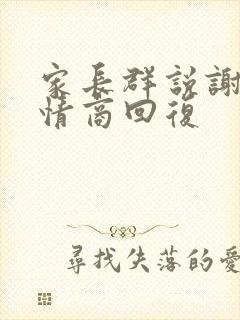 家長群説謝
情商回復
尋找失落的愛